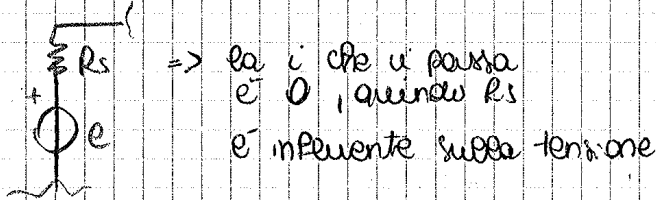 Rs => la i che vi passa
+ è 0, quindi Rs
e è influente sulla tensione